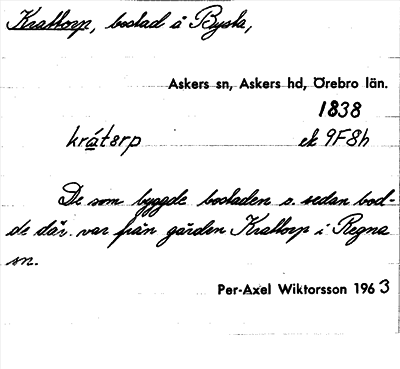 Krattorp, bostad å Bysta,
Askers sn, Askers hd, Örebro län.
1838
krát8rp ek 9F8h
De som byggde bostaden o. sedan bod-
de där. var från gården Krattorp i Regna
sn.
Per-Axel Wiktorsson 1963